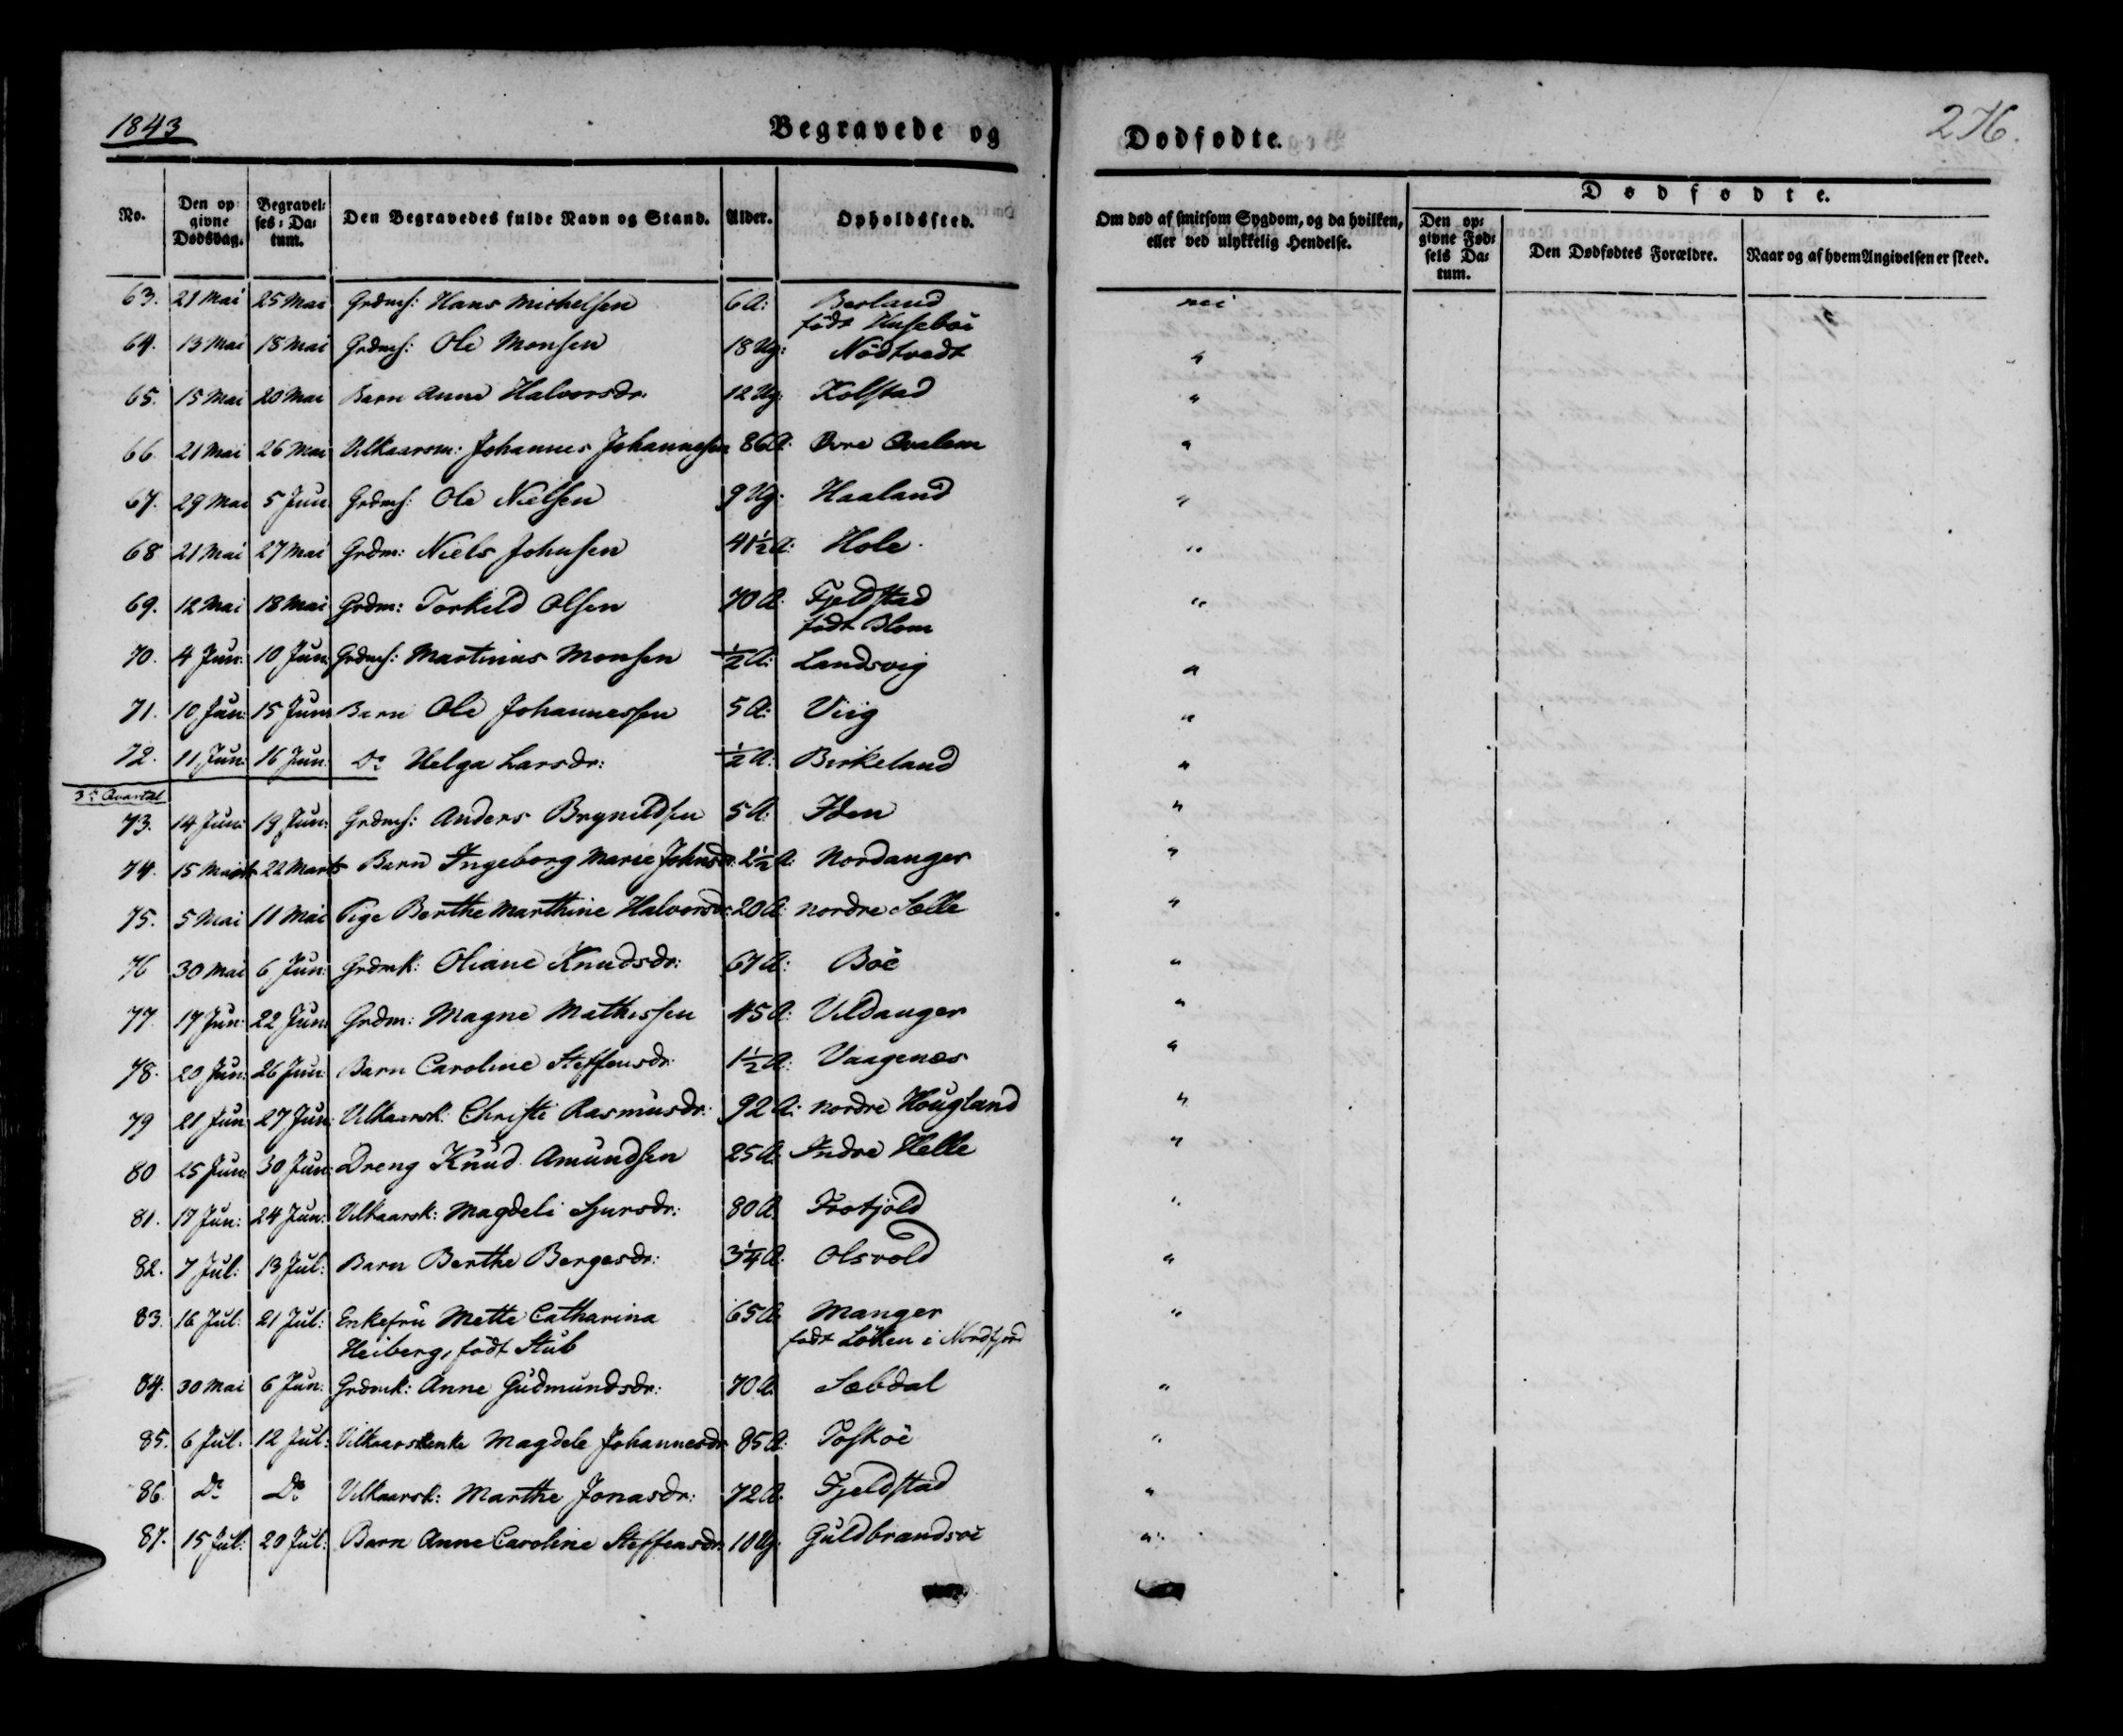 1843
Begravede og Dødfødte.
276.
No. Den opgivne Dødsdag. Begravelses-Datum. Den Begravedes fulde Navn og Stand. Alder. Opholdssted. Om død af smitsom Sygdom, og da hvilken, eller ved ulykkelig Hendelse. Dødfødte. Den opgivne Fødsels Datum. Den Dødfødtes Forældre. Naar og af hvem Angivelsen er skeed.
63. 21 Mai 25 Mai Grdms: Hans Michelsen 6 A: Berland nei
født Husebøe
64. 13 Mai 18 Mai Grdms: Ole Monsen 18 Ug: Nödtvedt "
65. 15 Mai 20 Mai Barn Anne Halvorsdr. 12 Ug: Kolstad "
66 21 Mai 26 Mai Vilkaarsm: Johannes Johannessen 86 A: Øvre Qvalem "
67. 29 Mai 5 Jun Grdms: Ole Nielsen 9 Ug: Haaland "
68 21 Mai 27 Mai Grdm: Niels Johnsen 41½ A: Hole "
69. 12 Mai 18 Mai Grdm: Torkild Olsen 70 A. Fjeldstad "
født Blom
70. 4 Jun: 10 Jun: Grdms: Martinus Monsen ½ A: Landsvig "
71. 10 Jun: 15 Jun: Barn Ole Johannessen 5 A: Viig "
72. 11 Jun: 16 Jun: Do Helga Larsdr: ½ A: Birkeland "
3die Qvartal
73. 14 Jun: 19 Jun: Grdms: Anders Brynildsen 5 A: Iden "
74. 15 Marts 22 Marts Barn Ingeborg Marie Johnsdr. 2½ A: Nordanger "
75. 5 Mai 11 Mai Pige Berthe Marthine Halvorsdr: 20 A: nordre Sælle "
76 30 Mai 6 Jun: Grdmk: Oliane Knudsdr: 67 A: Böe "
77. 17 Jun: 22 Jun: Grdm: Magne Mathissen 45 A: Vildanger "
78. 20 Jun: 26 Jun: Barn Caroline Steffensdr. 1½ A: Vaagenæs "
79 21 Jun 27 Jun: Vilkaarsk: Christi Rasmusdr: 92 A: nordre Hougland "
80 25 Jun: 30 Jun: Dreng Knud Amundsen 25 A: Indre Helle "
81. 17 Jun: 24 Jun: Vilkaarsk: Magdeli Sjursdr: 80 A. "
82. 7 Jul: 13 Jul: Barn Berthe Bergesdr: 3¼ A: Olsvold "
83. 16 Jul: 21 Jul: Enkefru Mette Catharina 65 A: Manger "
Heiberg, født Stub født Löken i Nordfjord
84. 30 Mai 6 Jun: Grdmk: Anne Gudmundsdr: 70 A. Sæbdal "
85. 6 Jul: 12 Jul: Vilkaarsenke Magdele Johannesdr 85 A: Toskøe "
86. Do Do Vilkaarsk: Marthe Jonasdr: 72 A: Fjeldstad "
87. 15 Jul: 20 Jul: Barn Anne Caroline Steffensdr. 10 Ug: Guldbrandsøe "